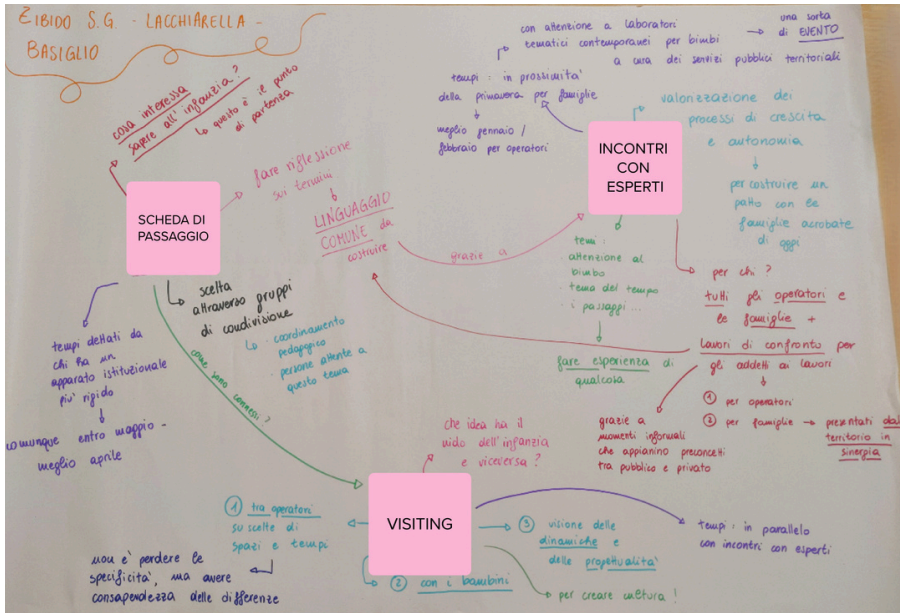 ZIBIDO S.G. - LACCHIARELLA -
BASIGLIO
cosa interessa
sapere all'infanzia?
↳ questo è il punto
di partenza
SCHEDA DI
PASSAGGIO
fare riflessione
sui termini
LINGUAGGIO
COMUNE da
costruire
grazie a
scelta
attraverso gruppi
di condivisione
↳ · coordinamento
pedagogico
· persone attente a
questo tema
tempi dettati da
chi ha un
apparato istituzionale
più rigido
comunque entro maggio -
meglio aprile
come sono connessi?
INCONTRI
CON
ESPERTI
tempi: in prossimità
della primavera per famiglie
meglio gennaio /
febbraio per operatori
con attenzione a laboratori
tematici contemporanei per bimbi
a cura dei servizi pubblici territoriali
una sorta
di EVENTO
valorizzazione dei
processi di crescita
e autonomia
per costruire un
patto con le
famiglie acrobate
di oggi
temi:
attenzione al
bimbo
· tema del tempo
· i passaggi ...
fare esperienza di
qualcosa
per chi?
tutti gli operatori e
le famiglie +
lavori di confronto per
gli addetti ai lavori
① per operatori
② per famiglie → presentati dal
territorio in
sinergia
grazie a
momenti informali
che appianino preconcetti
tra pubblico e privato
VISITING
che idea ha il
nido dell'infanzia
e viceversa?
① tra operatori
su scelte di
spazi e tempi
non è perdere le
specificità, ma avere
consapevolezza delle differenze
② con i bambini
③ visione delle
dinamiche e
delle progettualità
per creare cultura!
tempi: in parallelo
con incontri con esperti